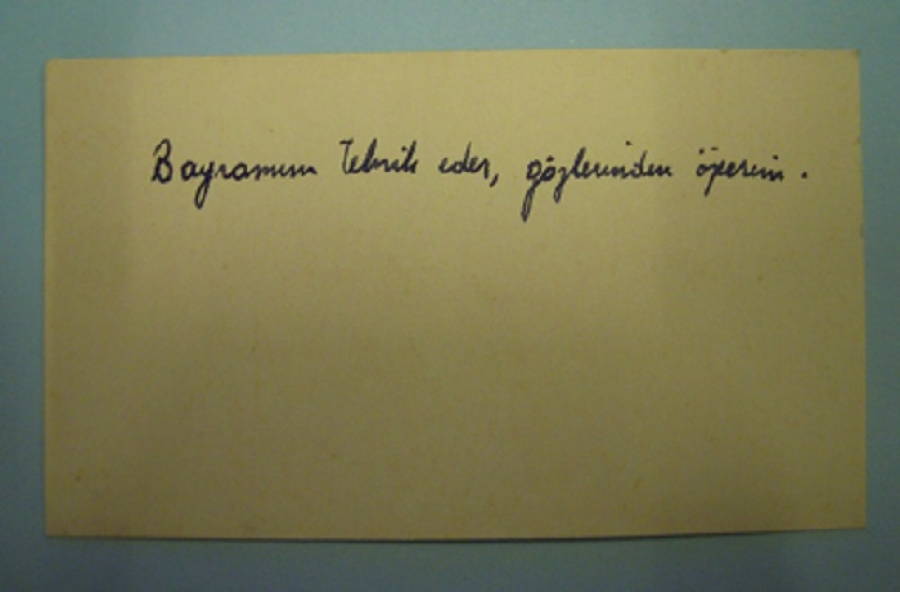 Bayramını Tebrik eder, gözlerinden öperim.